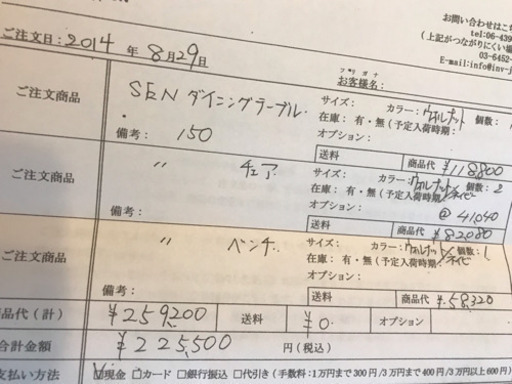 お問い合わせはこち
tel:06-439
(上記がつながりにくい場
03-6452-
E-mail:info@inv-j
ご注文日:2014 年 8月29日
フリガナ
お客様名:
ご注文商品 SEN ダイニングテーブル サイズ: カラー:ウォルナット 個数:
在庫: 有・無(予定入荷時期:
備考: 150 オプション:
送料 商品代 ¥118,800
ご注文商品 〃 チェア サイズ: カラー:ウォルナット/ネイビー 個数: 2
在庫: 有・無(予定入荷時期:
オプション: @ 41,040
備考: 送料 商品代 ¥82,080
ご注文商品 〃 ベンチ サイズ: カラー:ウォルナット/ネイビー 個数: 1
在庫: 有・無(予定入荷時期:
オプション:
備考: 送料 商品代 ¥58,320
品代(計) ¥259,200 送料 ¥0 オプション
合計金額 ¥225,500 円(税込)
支払い方法 ☑現金 □カード □銀行振込 □代引き(手数料:1万円まで300円/3万円まで400円/3万円以上600円)